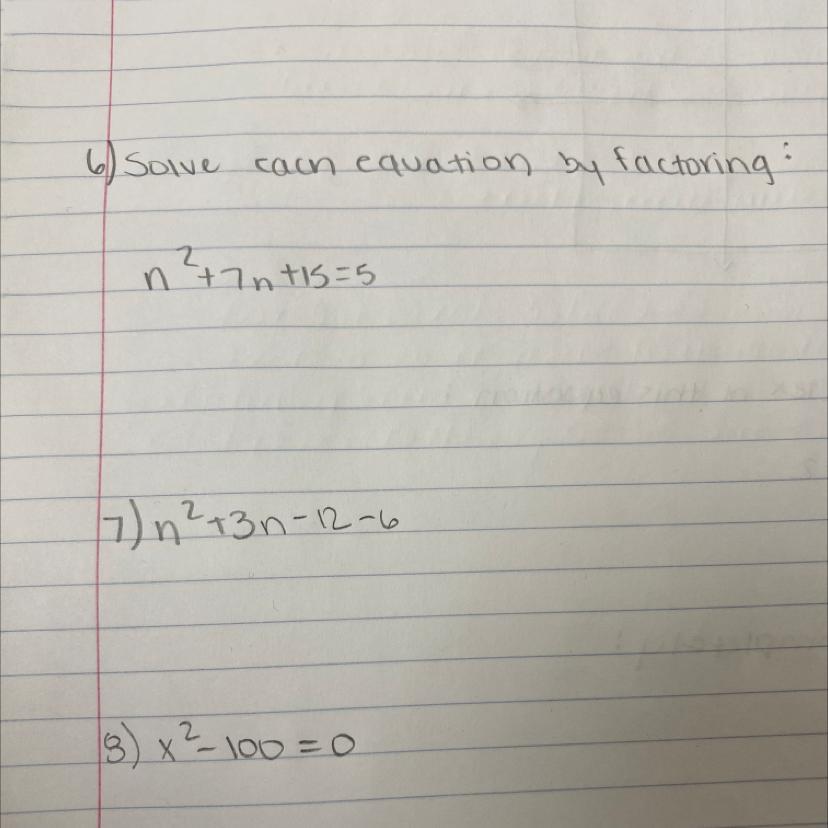 6) Solve each equation by factoring:
n²+7n+15=5
7) n²+3n-12-6
8) x²-100=0